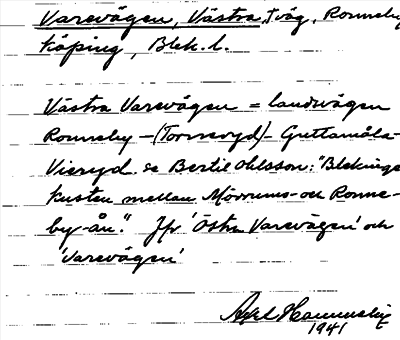 Varevägen, Västra, väg, Ronneby
köping, Blek. l.
Västra Varevägen = landsvägen
Ronneby –(Tornaryd)– Guttamåla-
Vieryd. se Bertil Ohlsson: "Blekinge
kusten mellan Mörrums- och Ronne-
by-ån." Jfr 'Östra Varevägen' och
'Varevägen'
Axel
1941